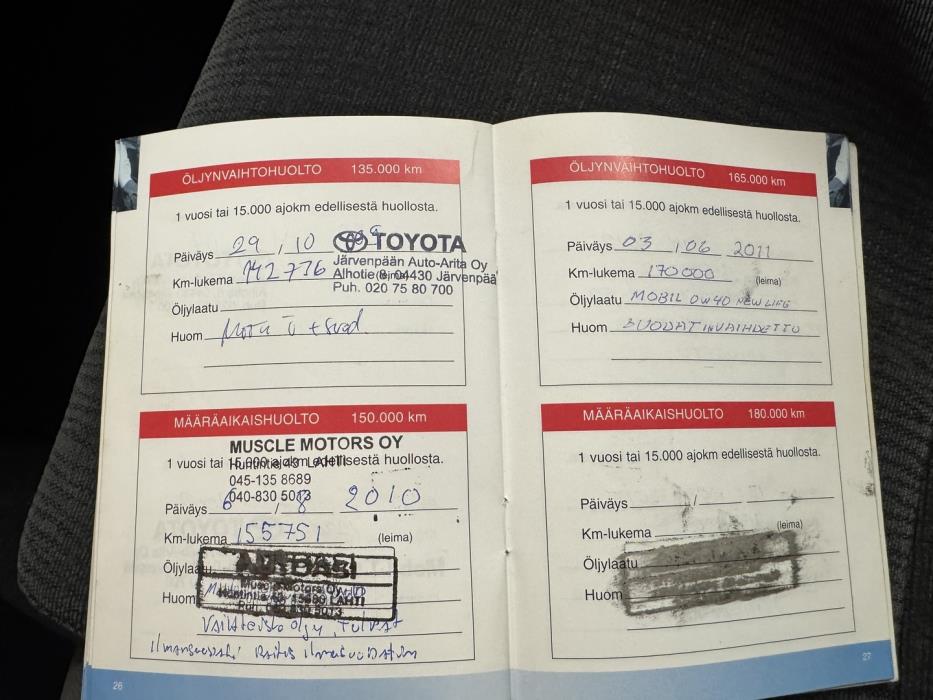 ÖLJYNVAIHTOHUOLTO 135.000 km
1 vuosi tai 15.000 ajokm edellisestä huollosta.
Päiväys 29 , 10 09
TOYOTA
Järvenpään Auto-Arita Oy
Km-lukema 142736 (leima)
Alhotie 8, 04430 Järvenpää
Puh. 020 75 80 700
Öljylaatu
Huom
MÄÄRÄAIKAISHUOLTO 150.000 km
MUSCLE MOTORS OY
1 vuosi tai 15.000 ajokm edellisestä huollosta.
LAHTI
045-135 8689
040-830 5013
Päiväys 6 / 8 2010
Km-lukema 155751 (leima)
Öljylaatu
Huom
Muscle Motors Oy
LAHTI
Vaihteisto öljy,
Raitis ilmasuodatin
26
ÖLJYNVAIHTOHUOLTO 165.000 km
1 vuosi tai 15.000 ajokm edellisestä huollosta.
Päiväys 03 / 06 2011
Km-lukema 170000 (leima)
Öljylaatu MOBIL 0W40 NEW LIFE
Huom SUODATIN VAIHDETTU
MÄÄRÄAIKAISHUOLTO 180.000 km
1 vuosi tai 15.000 ajokm edellisestä huollosta.
Päiväys /
Km-lukema (leima)
Öljylaatu
Huom
27